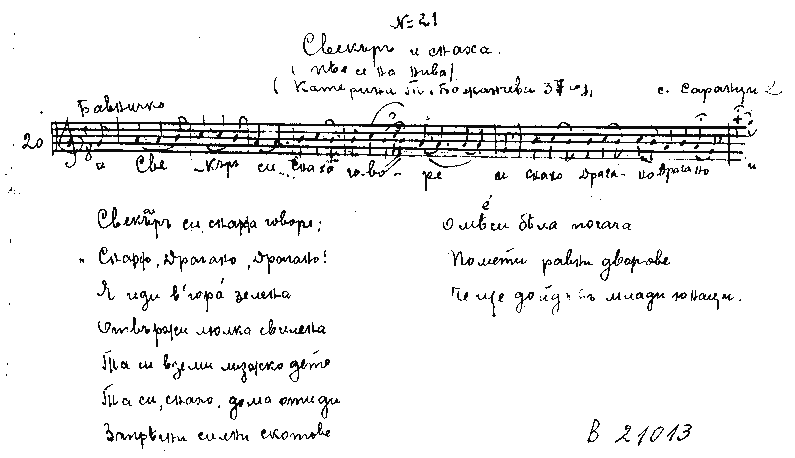 № 21
Свекъръ и снаха.
(Пѣе се на нива)
(Катерина Божанкова с. Саранци
Бавничко
20
и Све - кър си снахо го - во - ре и снахо Драга - но Драгано и
Свекъръ си, снаха говоре;
"Снахо, Драгано, Драгано!
Я иди в гора зелена
Отвържи люлка свилена
Та си вземи мъжко дете
Та си, снахо, дома отиди
Запрѣтни силни скотове
Омѣси бѣла погача
Помети равни дворове
Че ще дойдатъ млади юнаци.
В 21013